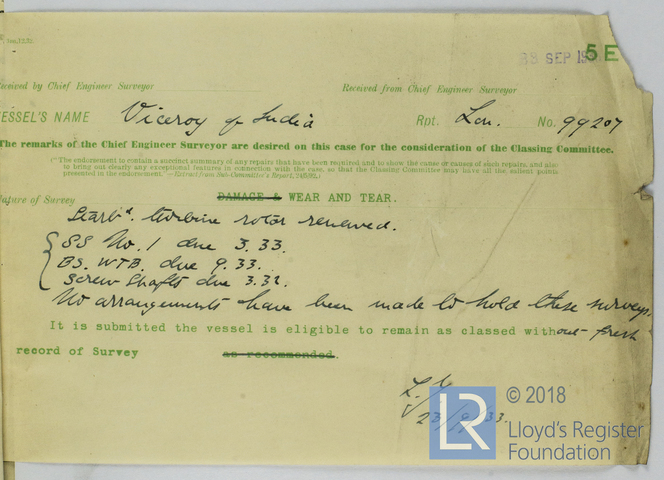 SEP 19
5E
Received by Chief Engineer Surveyor
Received from Chief Engineer Surveyor
VESSEL'S NAME Viceroy of India Rpt. Lon. No. 99207
The remarks of the Chief Engineer Surveyor are desired on this case for the consideration of the Classing Committee.
(*The endorsement to contain a succinct summary of any repairs that have been required and to show the cause or causes of such repairs, and also
to bring out clearly any exceptional features in connection with the case, so that the Classing Committee may have all the salient points
presented in the endorsement.*—Extract from Sub-Committee's Report,
Nature of Survey DAMAGE & WEAR AND TEAR.
Starbd. turbine rotor renewed.
SS No. 1 due 3.33.
BS. WTB. due 9.33.
Screw Shafts due 3.32.
No arrangements have been made to hold these surveys.
It is submitted the vessel is eligible to remain as classed without fresh
record of Survey as recommended.
23/9/33.
© 2018
LR
Lloyd's Register
Foundation